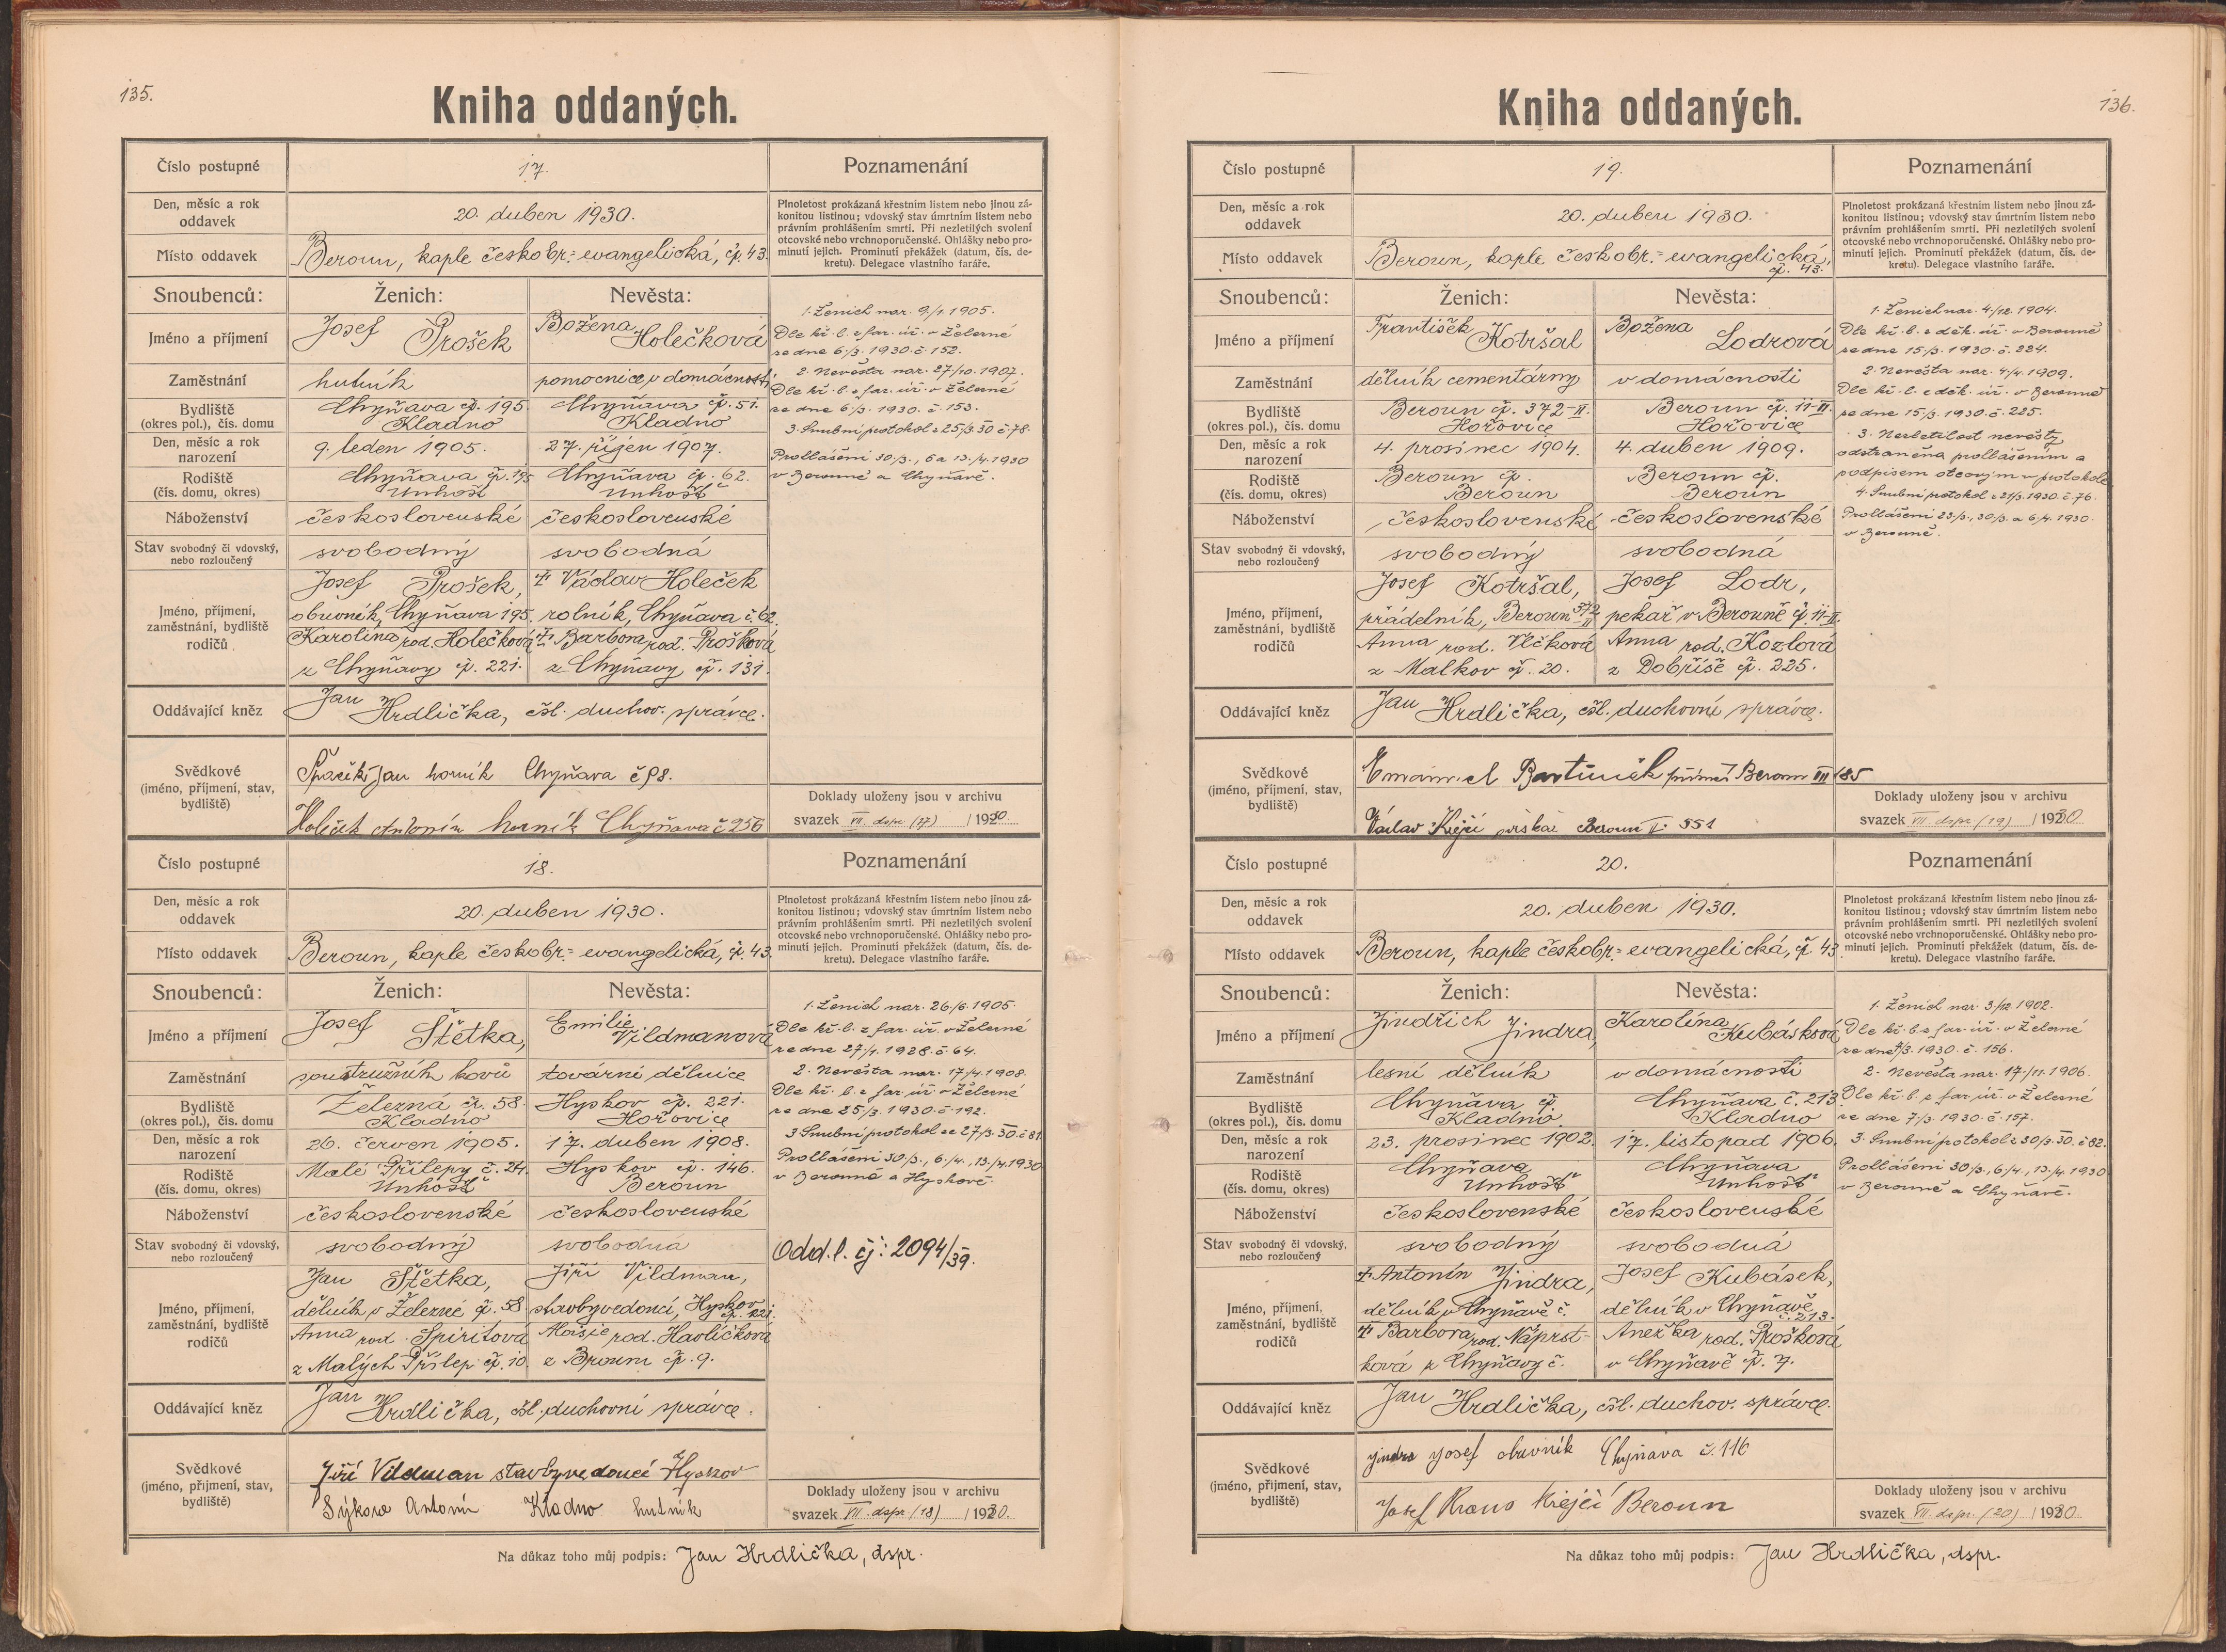 135.
Kniha oddaných.
Číslo postupné
17.
Poznamenání
Den, měsíc a rok
oddavek
20. duben 1930.
Plnoletost prokázaná křestním listem nebo jinou zá-
konitou listinou; vdovský stav úmrtním listem nebo
právním prohlášením smrti. Při nezletilých svolení
otcovské nebo vrchnoporučenské. Ohlášky nebo pro-
minutí jejich. Prominutí překážek (datum, čís. de-
kretu). Delegace vlastního faráře.
Místo oddavek
Beroun, kaple českobr.-evangelická, čp. 43.
Snoubenců:
Ženich:
Nevěsta:
Jméno a příjmení
Josef Prošek
Božena Holečková
Zaměstnání
hutník
pomocnice v domácnosti
Bydliště
(okres pol.), čís. domu
Chyňava čp. 195
Kladno
Chyňava čp. 51.
Kladno
Den, měsíc a rok
narození
9. leden 1905.
27. říjen 1907.
Rodiště
(čís. domu, okres)
Chyňava čp. 195
Unhošť
Chyňava čp. 62.
Unhošť
Náboženství
československé
československé
Stav svobodný či vdovský,
nebo rozloučený
svobodný
svobodná
Jméno, příjmení,
zaměstnání, bydliště
rodičů
Josef Prošek,
obuvník, Chyňava 195.
Karolina rod. Holečková
z Chyňavy čp. 221.
† Václav Holeček
rolník, Chyňava č. 62.
† Barbora rod. Prošková
z Chyňavy čp. 131.
1. Ženich nar. 9/1. 1905.
Dle kř. l. z far. úř. v Železné
ze dne 6/3. 1930. č. 152.
2. Nevěsta nar. 27/10. 1907.
Dle kř. l. z far. úř. v Železné
ze dne 6/3. 1930. č. 153.
3. Snubní protokol z 25/3. 30 č. 78.
Prohlášeni 30/3., 6 a 13./4. 1930
v Berouně a Chyňavě.
Oddávající kněz
Jan Hrdlička, čsl. duchov. správce.
Svědkové
(jméno, příjmení, stav,
bydliště)
Jan horník Chyňava č 98.
Holeček Antonín horník Chyňava č 256
Doklady uloženy jsou v archivu
svazek VII. dspr (17) / 1930.
Číslo postupné
18.
Poznamenání
Den, měsíc a rok
oddavek
20. duben 1930.
Plnoletost prokázaná křestním listem nebo jinou zá-
konitou listinou; vdovský stav úmrtním listem nebo
právním prohlášením smrti. Při nezletilých svolení
otcovské nebo vrchnoporučenské. Ohlášky nebo pro-
minutí jejich. Prominutí překážek (datum, čís. de-
kretu). Delegace vlastního faráře.
Místo oddavek
Beroun, kaple českobr.-evangelická, čp. 43.
Snoubenců:
Ženich:
Nevěsta:
Jméno a příjmení
Josef Štětka,
Emilie Vildmanová
Zaměstnání
soustružník kovů
tovární dělnice
Bydliště
(okres pol.), čís. domu
Železná čp. 58.
Kladno
Hyskov čp. 221.
Hořovice
Den, měsíc a rok
narození
26. červen 1905.
17. duben 1908.
Rodiště
(čís. domu, okres)
Malé Přílepy č. 24.
Unhošť
Hyskov čp. 146.
Beroun
Náboženství
československé
československé
Stav svobodný či vdovský,
nebo rozloučený
svobodný
svobodná
Jméno, příjmení,
zaměstnání, bydliště
rodičů
Jan Štětka,
dělník v Železné čp. 58
Anna rod. Spiritová
z Malých Přílep čp. 10.
Jiří Vildman,
stavbyvedoucí, Hyskov
čp. 221.
Aloisie rod. Havlíčková
z Broum čp. 9.
1. Ženich nar. 26/6. 1905.
Dle kř. l. z far. úř. v Železné
ze dne 27/4. 1928. č. 64.
2. Nevěsta nar. 17/4. 1908.
Dle kř. l. z far. úř. v Železné
ze dne 25/3. 1930. č. 192.
3. Snubní protokol ze 27/3. 30. č 81
Prohlášeni 30/3., 6./4., 13./4. 1930
v Berouně a Hyskově.
Odd. l. čj: 2094/39.
Oddávající kněz
Jan Hrdlička, čsl. duchovní správce.
Svědkové
(jméno, příjmení, stav,
bydliště)
Jiří Vildman stavbyvedoucí Hyskov
Sýkora Antonín Kladno hutník
Doklady uloženy jsou v archivu
svazek VII. dspr (18) / 1930.
Na důkaz toho můj podpis: Jan Hrdlička, dspr.
136.
Kniha oddaných.
Číslo postupné
19.
Poznamenání
Den, měsíc a rok
oddavek
20. duben 1930.
Plnoletost prokázaná křestním listem nebo jinou zá-
konitou listinou; vdovský stav úmrtním listem nebo
právním prohlášením smrti. Při nezletilých svolení
otcovské nebo vrchnoporučenské. Ohlášky nebo pro-
minutí jejich. Prominutí překážek (datum, čís. de-
kretu). Delegace vlastního faráře.
Místo oddavek
Beroun, kaple českobr.-evangelická,
čp. 43.
Snoubenců:
Ženich:
Nevěsta:
Jméno a příjmení
František Kotršal
Božena Lodrová
Zaměstnání
dělník cementárny
v domácnosti
Bydliště
(okres pol.), čís. domu
Beroun čp. 372-II.
Hořovice
Beroun čp. 11-II.
Hořovice
Den, měsíc a rok
narození
4. prosinec 1904.
4. duben 1909.
Rodiště
(čís. domu, okres)
Beroun čp.
Beroun
Beroun čp.
Beroun
Náboženství
československé
československé
Stav svobodný či vdovský,
nebo rozloučený
svobodný
svobodná
Jméno, příjmení,
zaměstnání, bydliště
rodičů
Josef Kotršal,
přádelník, Beroun 372/II
Anna rod. Vlčková
z Malkov čp. 20.
Josef Lodr,
pekař v Berouně čp 11-II
Anna rod. Kozlová
z Dobříše čp. 225.
1. Ženich nar. 4/12. 1904.
Dle kř. l. z děk. úř. v Berouně
ze dne 15/3. 1930. č. 224.
2. Nevěsta nar. 4/4. 1909.
Dle kř. l. z děk. úř. v Berouně
ze dne 15/3. 1930. č. 225.
3. Nezletilost nevěsty
odstraněna prohlášením a
podpisem otcovým v protokole
4. Snubní protokol z 21/3. 1930. č. 76.
Prohlášeni 23/3., 30/3. a 6/4. 1930.
v Berouně.
Oddávající kněz
Jan Hrdlička, čsl. duchovní správce.
Svědkové
(jméno, příjmení, stav,
bydliště)
Emanuel Bartůněk Beroun III 185
Václav Krejčí Beroun II. 551
Doklady uloženy jsou v archivu
svazek VII. dspr (19) / 1930
Číslo postupné
20.
Poznamenání
Den, měsíc a rok
oddavek
20. duben 1930.
Plnoletost prokázaná křestním listem nebo jinou zá-
konitou listinou; vdovský stav úmrtním listem nebo
právním prohlášením smrti. Při nezletilých svolení
otcovské nebo vrchnoporučenské. Ohlášky nebo pro-
minutí jejich. Prominutí překážek (datum, čís. de-
kretu). Delegace vlastního faráře.
Místo oddavek
Beroun, kaple českobr.-evangelická, čp. 43
Snoubenců:
Ženich:
Nevěsta:
Jméno a příjmení
Jindřich Jindra,
Karolína Kubásková
Zaměstnání
lesní dělník
v domácnosti
Bydliště
(okres pol.), čís. domu
Chyňava čp.
Kladno
Chyňava č. 213
Kladno
Den, měsíc a rok
narození
23. prosinec 1902.
17. listopad 1906.
Rodiště
(čís. domu, okres)
Chyňava
Unhošť
Chyňava
Unhošť
Náboženství
československé
československé
Stav svobodný či vdovský,
nebo rozloučený
svobodný
svobodná
Jméno, příjmení,
zaměstnání, bydliště
rodičů
† Antonín Jindra,
dělník v Chyňavě č.
† Barbora rod. Náprst-
ková z Chyňavy č.
Josef Kubásek,
dělník v Chyňavě
č. 213.
Anežka rod. Prošková
v Chyňavě čp. 7.
1. Ženich nar. 3/12. 1902.
Dle kř. l. z far. úř. v Železné
ze dne 7/3. 1930. č. 156.
2. Nevěsta nar. 17/11. 1906.
Dle kř. l. z far. úř. v Železné
ze dne 7/3. 1930. č. 157.
3. Snubní protokol z 30/3. 30. č 82.
Prohlášeni 30/3., 6/4., 13/4. 1930
v Berouně a Chyňavě.
Oddávající kněz
Jan Hrdlička, čsl. duchov. správce.
Svědkové
(jméno, příjmení, stav,
bydliště)
Jindra Josef obuvník Chyňava č. 116
Josef Kraus krejčí Beroun
Doklady uloženy jsou v archivu
svazek VII. dspr. (20) / 1930.
Na důkaz toho můj podpis: Jan Hrdlička, dspr.